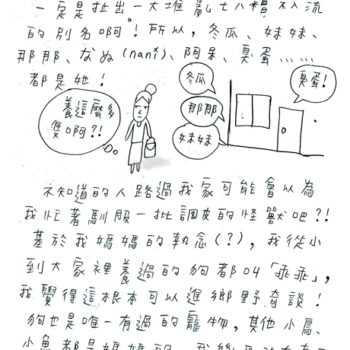 一定是扯出一大堆亂七八糟不入流
的別名啊!所以,冬瓜、妹妹、
那那、なぬ(nani)、阿呆、臭蛋……
都是她!
養這麼多
隻啊?!
冬瓜
那那
妹妹
臭蛋!
不知道的人路過我家可能會以為
我忙著馴服一批調皮的怪獸吧?!
基於我媽媽的執念(?),我從小
到大家裡養過的狗都叫「乖乖」,
我覺得這根本可以進鄉野奇談!
狗也是唯一有過的寵物,其他小鳥、
小魚都是媽媽的